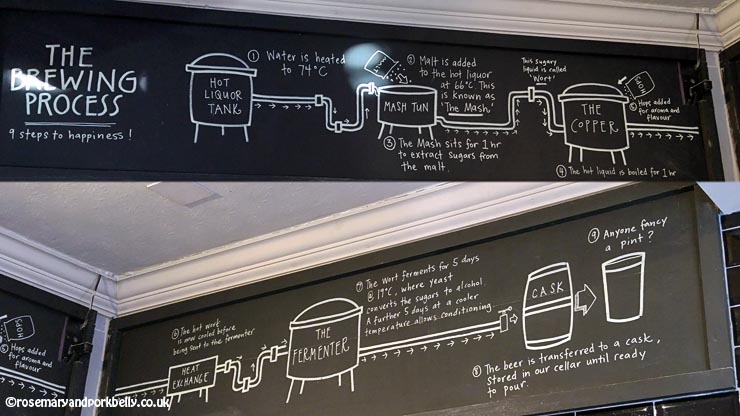 THE
BREWING
PROCESS
9 steps to happiness!
HOT
LIQUOR
TANK
① Water is heated
to 74°C
② Malt is added
to the hot liquor
at 66°C. This
is known as
'The Mash'
MASH TUN
③ The Mash sits for 1 hr
to extract sugars from
the malt.
This sugary
liquid is called
'Wort'!
THE
COPPER
④ The hot liquid is boiled for 1 hr
HOPS
⑤ Hops added
for aroma and
flavour
HOPS
⑤ Hops added
for aroma and
flavour
⑥ The hot work
is now cooled before
being sent to the fermenter
HEAT
EXCHANGE
THE
FERMENTER
⑦ The wort ferments for 5 days
@ 19°C, where yeast
converts the sugars to alcohol.
A further 5 days at a cooler
temperature allows conditioning
CASK
⑧ The beer is transferred to a cask,
stored in our cellar until ready
to pour.
⑨ Anyone fancy
a pint?
©rosemaryandporkbelly.co.uk